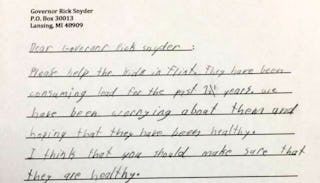 Governor Rick Snyder
P.O. Box 30013
Lansing, MI 48909
Dear Governor Rick snyder :
Please help the kids in Flint. They have been
consuming lead for the past years. we
have been worrying about them and
hoping that they have been healthy.
I think that you should make sure that
they are healthy.